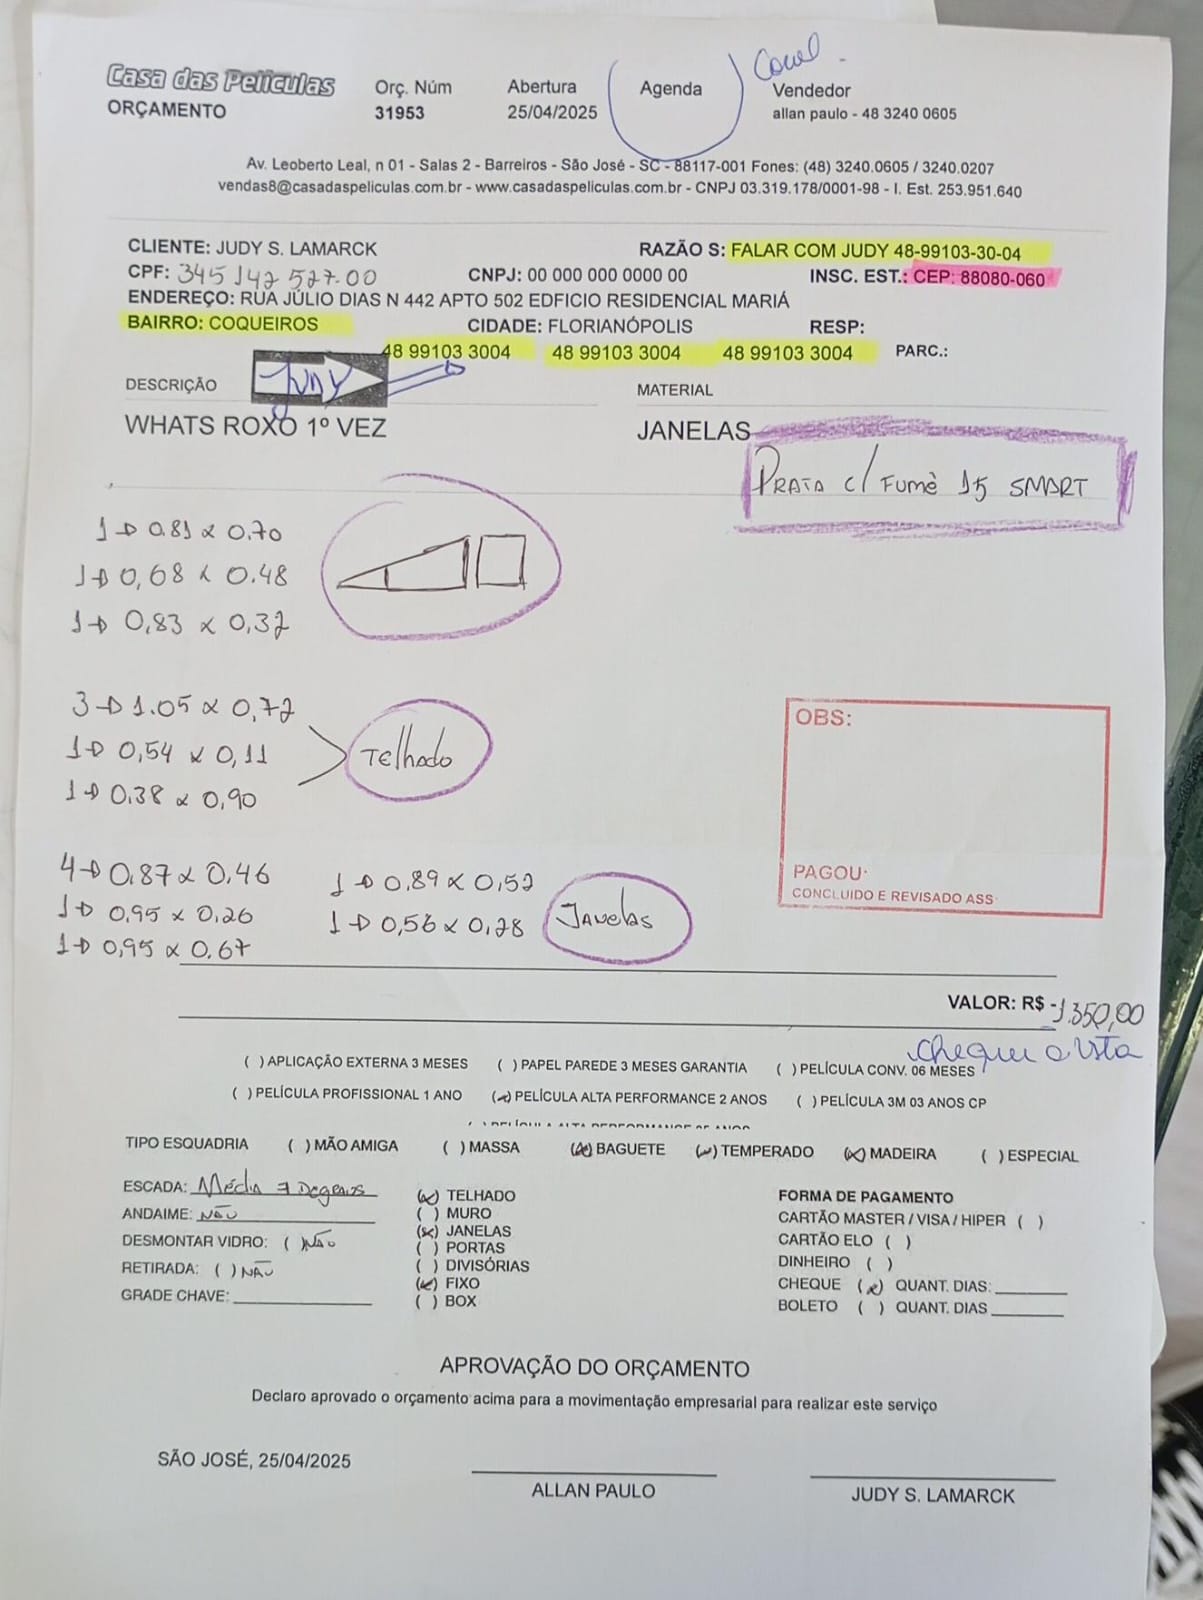 Casa das Películas
ORÇAMENTO
Orç. Núm
31953
Abertura
25/04/2025
Agenda
Vendedor
allan paulo - 48 3240 0605
Av. Leoberto Leal, n 01 - Salas 2 - Barreiros - São José - SC - 88117-001 Fones: (48) 3240.0605 / 3240.0207
vendas8@casadaspeliculas.com.br - www.casadaspeliculas.com.br - CNPJ 03.319.178/0001-98 - I. Est. 253.951.640
CLIENTE: JUDY S. LAMARCK RAZÃO S: FALAR COM JUDY 48-99103-30-04
CPF: 345 142 527.00 CNPJ: 00 000 000 0000 00 INSC. EST.: CEP: 88080-060
ENDEREÇO: RUA JÚLIO DIAS N 442 APTO 502 EDFICIO RESIDENCIAL MARIÁ
BAIRRO: COQUEIROS CIDADE: FLORIANÓPOLIS RESP:
48 99103 3004 48 99103 3004 48 99103 3004 PARC.:
DESCRIÇÃO JUDY MATERIAL
WHATS ROXO 1º VEZ JANELAS
PRATA c/ FUMÊ 15 SMART
1→ 0.81 x 0.70
1→ 0,68 x 0.48
1→ 0,83 x 0,32
3→ 1.05 x 0,72
1→ 0,54 x 0,11
Telhado
1→ 0.38 x 0,90
4→ 0,87 x 0,46 1→ 0,89 x 0,52
1→ 0,95 x 0,26 1→ 0,56 x 0,28 Janelas
1→ 0,95 x 0.67
OBS:
PAGOU:
CONCLUIDO E REVISADO ASS
VALOR: R$ - 1.350,00
cheque a vista
( ) APLICAÇÃO EXTERNA 3 MESES ( ) PAPEL PAREDE 3 MESES GARANTIA ( ) PELÍCULA CONV. 06 MESES
( ) PELÍCULA PROFISSIONAL 1 ANO (x) PELÍCULA ALTA PERFORMANCE 2 ANOS ( ) PELÍCULA 3M 03 ANOS CP
TIPO ESQUADRIA ( ) MÃO AMIGA ( ) MASSA (x) BAGUETE (x) TEMPERADO (x) MADEIRA ( ) ESPECIAL
ESCADA: Média 7 Degraus
ANDAIME: NÃO
DESMONTAR VIDRO: ( ) NÃO
RETIRADA: ( ) NÃO
GRADE CHAVE:
(x) TELHADO
( ) MURO
(x) JANELAS
( ) PORTAS
( ) DIVISÓRIAS
(x) FIXO
( ) BOX
FORMA DE PAGAMENTO
CARTÃO MASTER / VISA / HIPER ( )
CARTÃO ELO ( )
DINHEIRO ( )
CHEQUE (x) QUANT. DIAS:
BOLETO ( ) QUANT. DIAS
APROVAÇÃO DO ORÇAMENTO
Declaro aprovado o orçamento acima para a movimentação empresarial para realizar este serviço
SÃO JOSÉ, 25/04/2025
ALLAN PAULO
JUDY S. LAMARCK